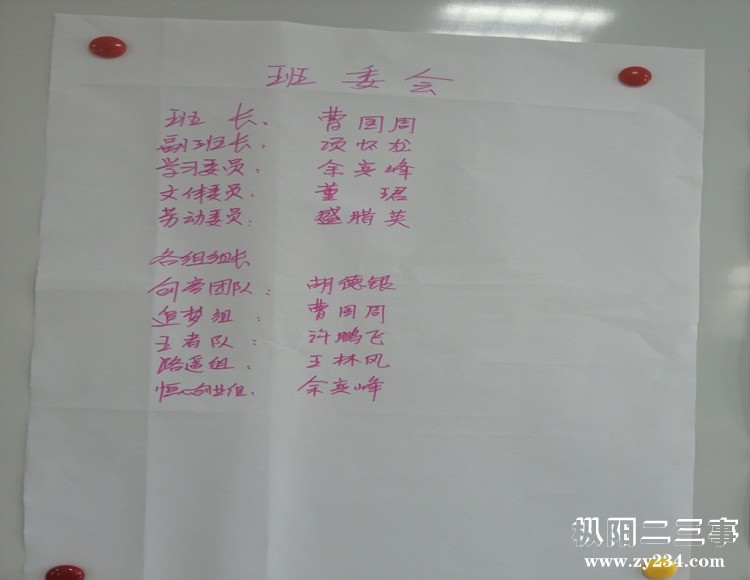 班委会
班长: 曹国周
副班长: 项怀松
学习委员: 余宾峰
文体委员: 董珺
劳动委员: 盛腊英
各组组长
创奇团队: 胡德银
追梦组: 曹国周
王者队: 许鹏飞
路遥组: 王林风
恒心创业组: 余宾峰
枞阳二三事
www.zy234.com